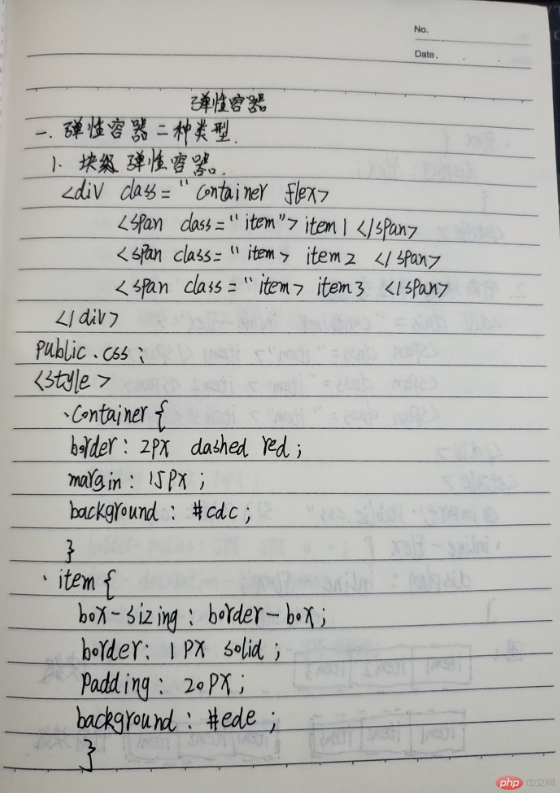 No.
Date.
弹性容器
一. 弹性容器二种类型.
1. 块级弹性容器.
<div class="container flex>
<span class="item"> item1 </span>
<span class="item> item2 </span>
<span class="item> item3 </span>
</div>
Public.css:
<style>
.Container{
border: 2px dashed red;
margin: 15px;
background: #cdc;
}
.item{
box-sizing: border-box;
border: 1px solid;
Padding: 20px;
background: #ede;
}
php 中文网